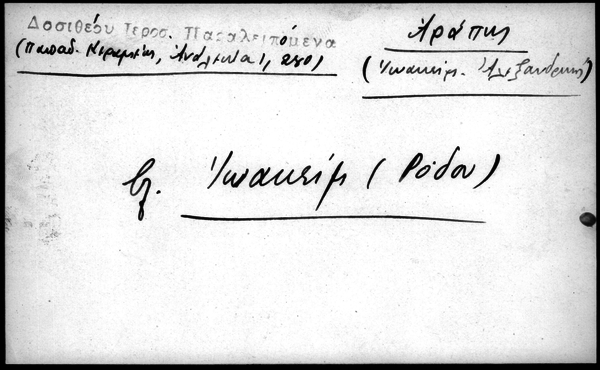 Δοσιθέου Ιεροσ. Παραλειπόμενα
(Παπαδ. Κεραμεύς, Ἀνάλεκτα 1, 280)
Ἀράπης
(Ἰωακεὶμ Ἀλεξανδρείας)
βλ. Ἰωακεὶμ (Ρόδου)